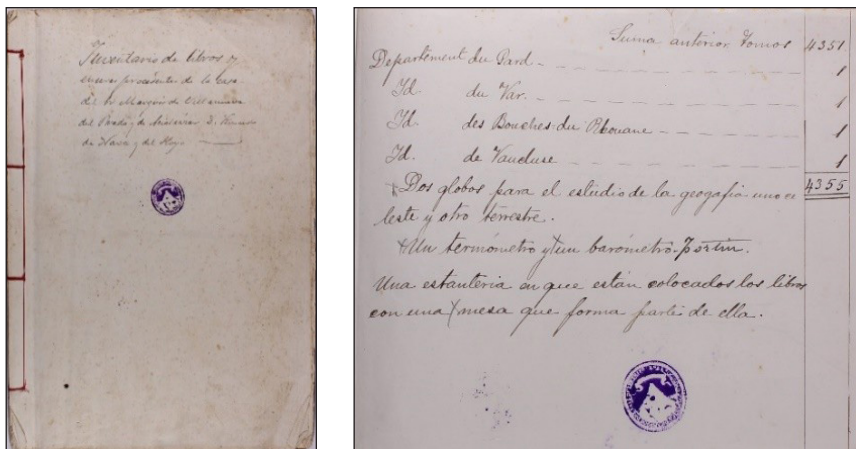 Inventario de libros y
enseres procedentes de la casa
del Sr. Marqués de Villanueva
del Prado y de Acialcázar D.
de Nava y del Hoyo
Suma anterior tomos 4351
Departément du Gard 1
Id. du Var. 1
Id. des Bouches du Rhouane 1
Id. de Vaucluse 1
4355
Dos globos para el estudio de la geografía uno ce
leste y otro terrestre.
Un termómetro y un barómetro
Una estantería en que están colocados los libros
con una mesa que forma parte de ella.